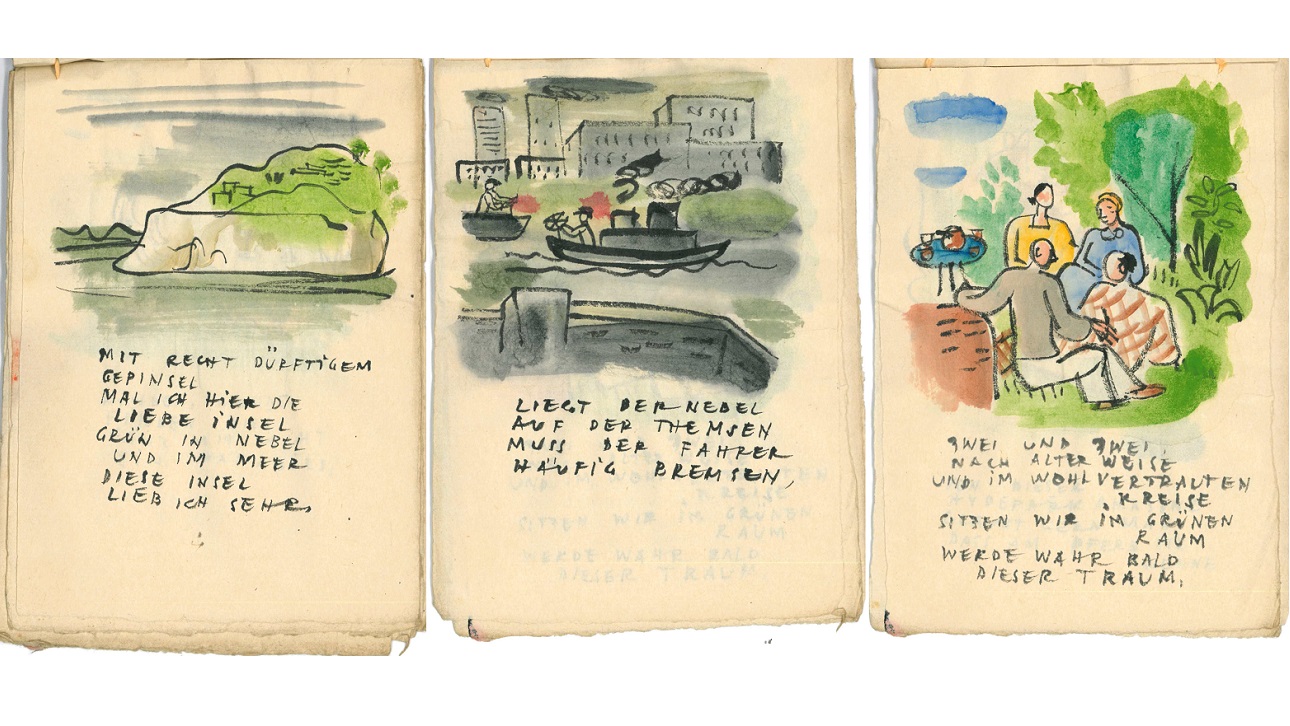 MIT RECHT DÜRFTIGEM
GEPINSEL
MAL ICH HIER DIE
LIEBE INSEL
GRÜN IN NEBEL
UND IM MEER
DIESE INSEL
LIEB ICH SEHR,
LIEGT DER NEBEL
AUF DER THEMSEN
MUSS DER FAHRER
HÄUFIG BREMSEN,
ZWEI UND ZWEI,
NACH ALTER WEISE
UND IM WOHLVERTRAUTEN
KREISE
SITZEN WIR IM GRÜNEN
RAUM
WERDE WAHR BALD
DIESER TRAUM,